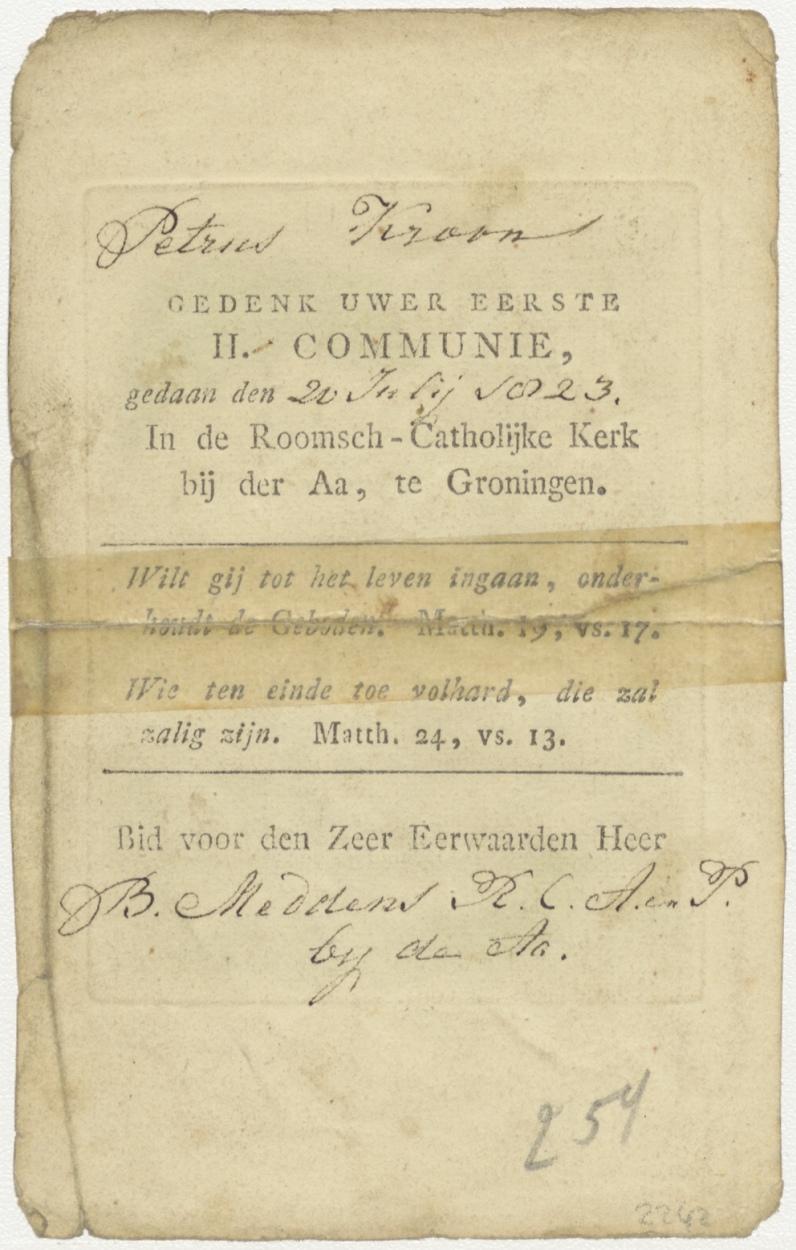 Petrus Kroon
GEDENK UWER EERSTE
H. COMMUNIE,
gedaan den 20 Julij 1823.
In de Roomsch-Catholijke Kerk
bij der Aa, te Groningen.
Wilt gij tot het leven ingaan, onder-
houdt de Geboden. Matth. 19, vs. 17.
Wie ten einde toe volhard, die zal
zalig zijn. Matth. 24, vs. 13.
Bid voor den Zeer Eerwaarden Heer
B. Meddens R. C. A. en P.
by de Aa.
254
2242